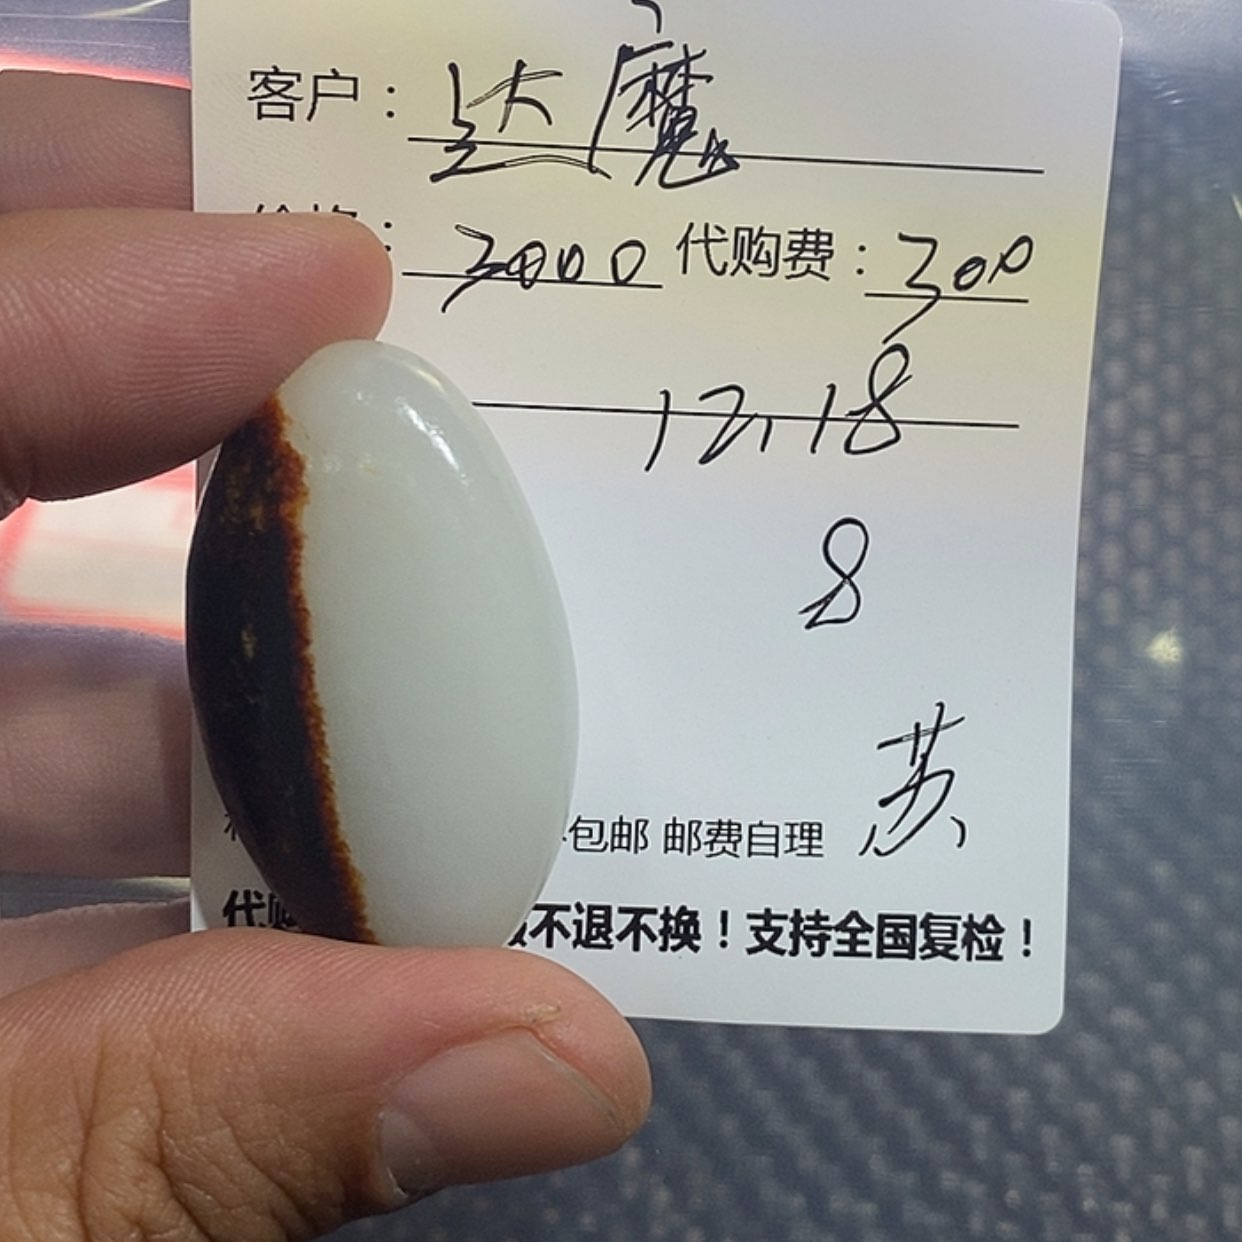 客户：达魔
3000 代购费：300
12.18
8
苏
包邮 邮费自理
代购 不退不换！支持全国复检！